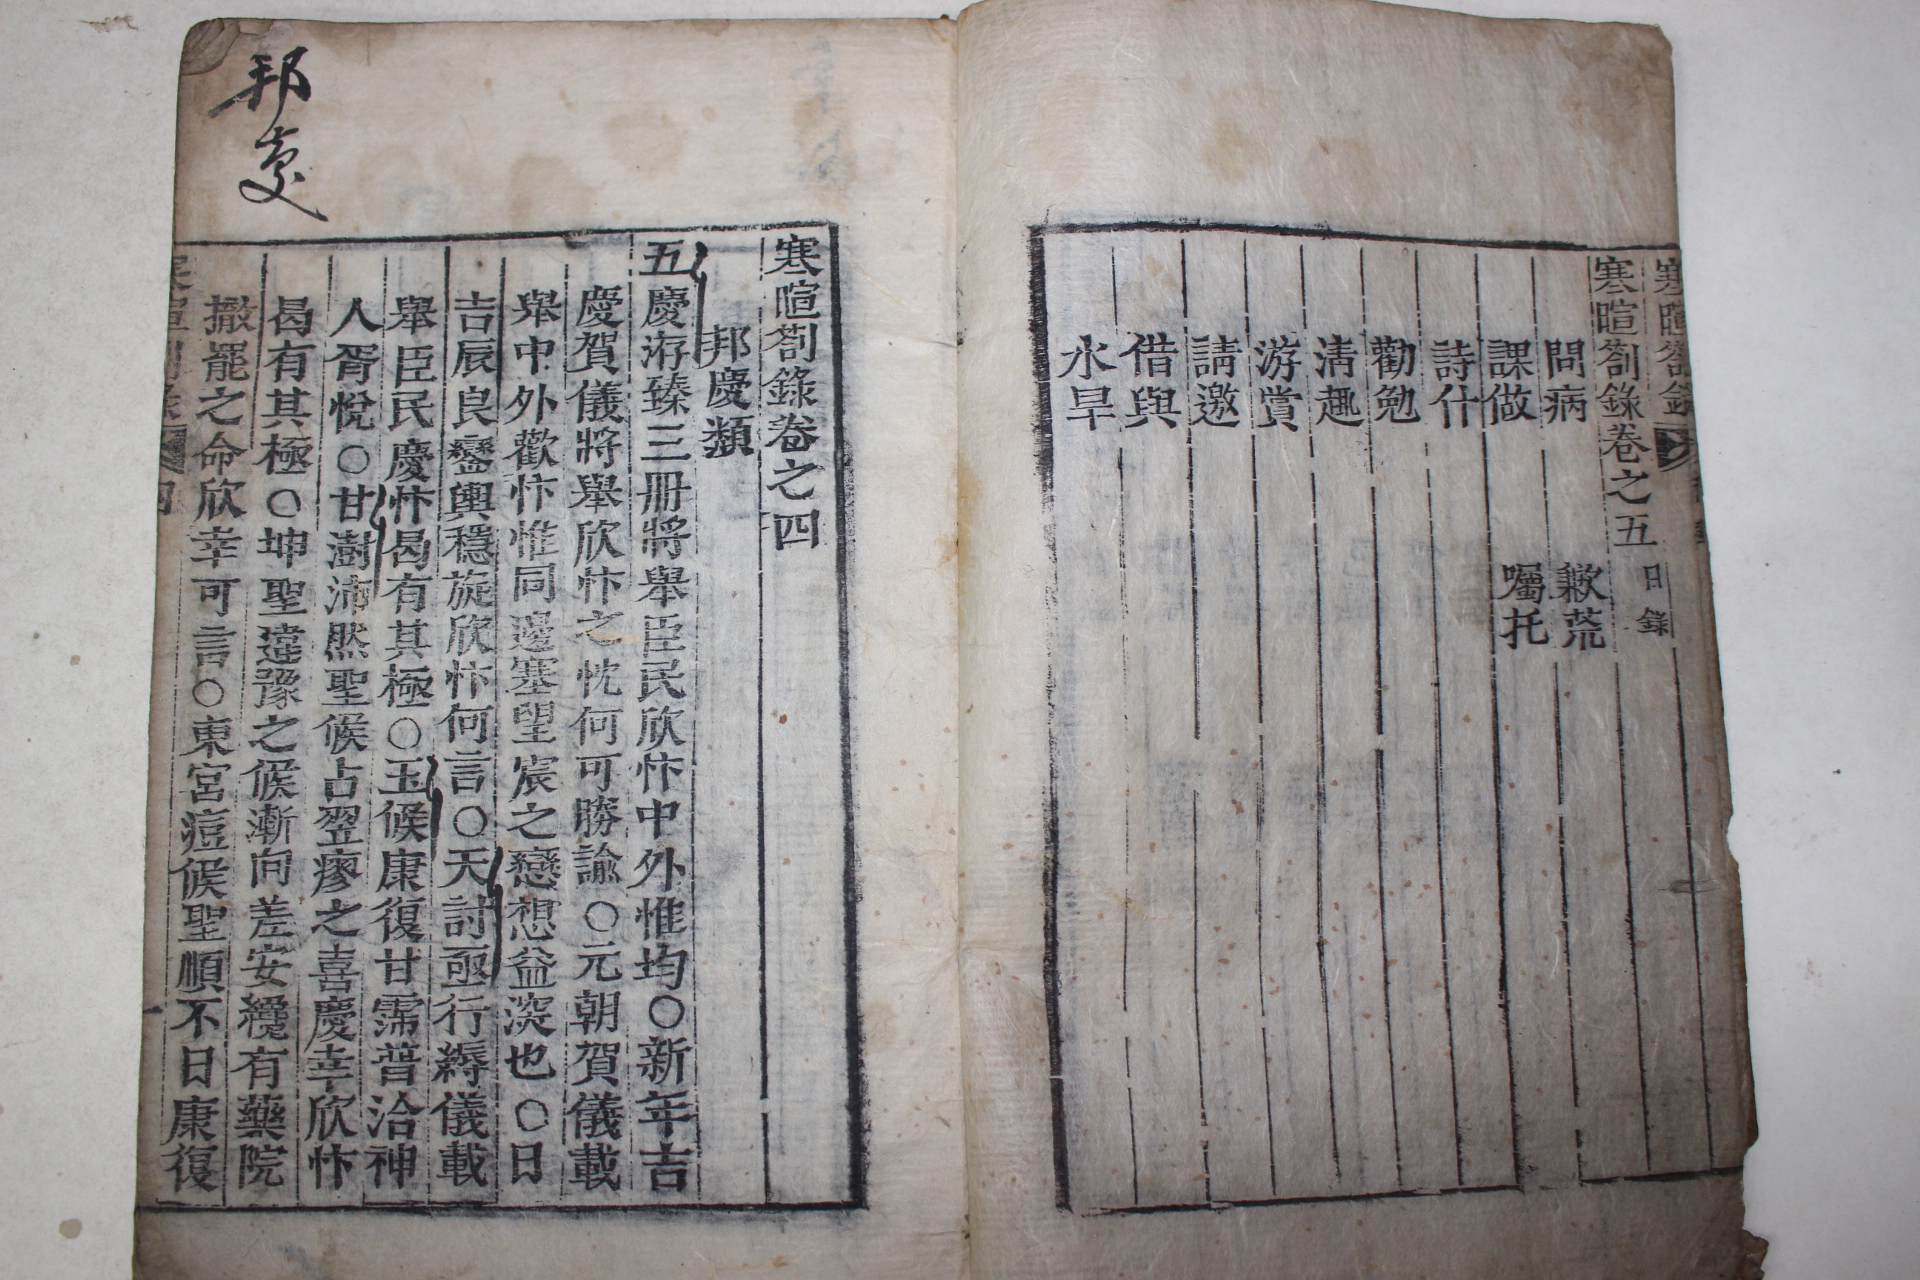 寒暄劄錄
寒暄劄錄卷之五目錄
問病 歉荒
課做 囑托
詩什
勸勉
淸趣
游賞
請邀
借與
水旱
邦慶
寒暄劄錄卷之四
邦慶類
五慶洊臻三冊將擧臣民欣忭中外惟均○新年吉
慶賀儀將擧欣忭之忱何可勝諭○元朝賀儀載
擧中外歡忭惟同邊塞望宸之戀想益深也○日
吉辰良鑾輿穩旋欣忭何言○天討亟行縟儀載
擧臣民慶忭曷有其極○玉候康復甘霈普洽神
人胥悅○甘澍沛然聖候占翌瘳之喜慶幸欣忭
曷有其極○坤聖違豫之候漸向差安纔有藥院
撤罷之命欣幸可言○東宮痘候聖順不日康復